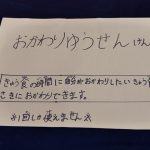 おかわりゆうせん けん
きゅう食の時間に自分がおかわりしたいきゅう食を
さきにおかわりできます。
※1回しか使えません※